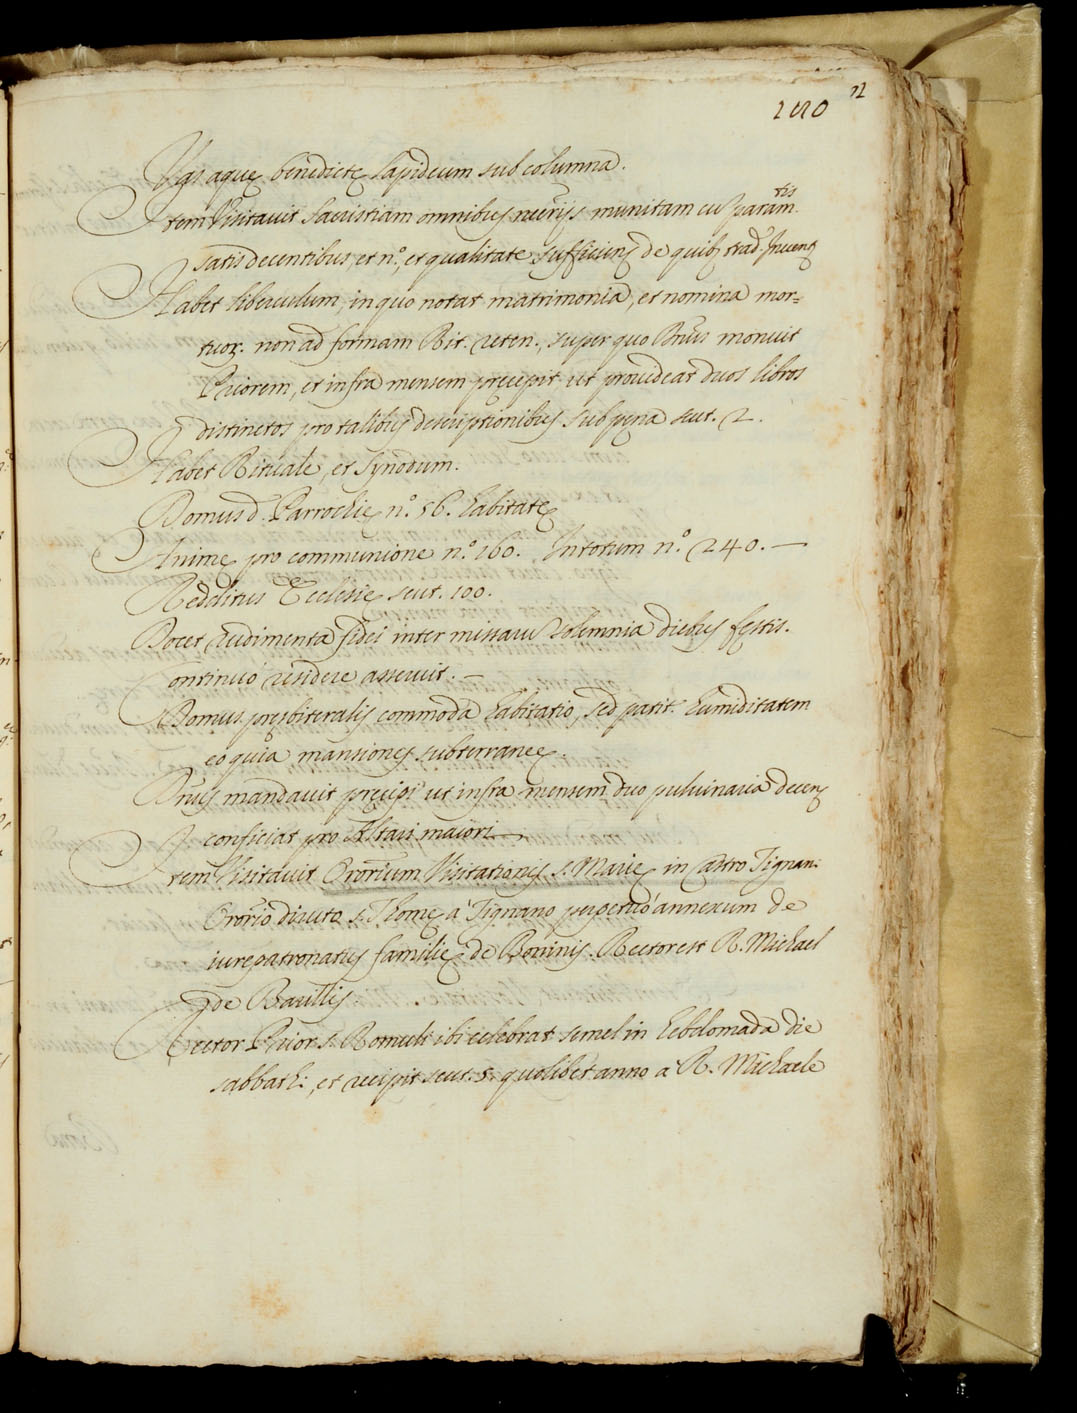 72
Vas aquę benedictę lapideum sub columna.
Item Visitavit Sacristiam omnibus necrijs munitam cu' param.tis
satis decentibus, et n.º, et qualitate sufficiens de quib. trad. Invent.
Habet liberculum, in quo notat matrimonia, et nomina mor=
tuor. non ad formam Rit. reten., super quo Dnus monuit
Priorem, et infra mensem precepit ut provideat duos libros
distinctos pro talibus descriptionibus sub pęna scut. 2.
Habet Rituale, et Synodum.
Domus d. Parrochię n.º 56. habitatę
Animę pro communione n.º 160. In totum n.º 240. —
Redditus Ecclesię scut. 100.
Docet rudimenta fidei inter missarū solemnia diebus festis.
Continuò residere asseruit. —
Domus pręsbiteralis commoda habitatio, sed patit. humiditatem
eo quia mansiones subterraneę.
Dnus mandavit pręcipi ut infra mensem duo pulvinaria decen.
conficiat pro Altari maiori —
Item Visitavit Oratorium Visitationis S. Marię in castro Tignan:
Oratorio diruto S. Thomę a' Tignano perpetuò annexum de
iurepatronatus familię de Boninis. Rector est R. Michael
de Baullis
Rector Prior S. Romuli ibi celebrat semel in hebdomada die
sabbath:, et recipit scut. 5. quolibet anno a R. Michaele